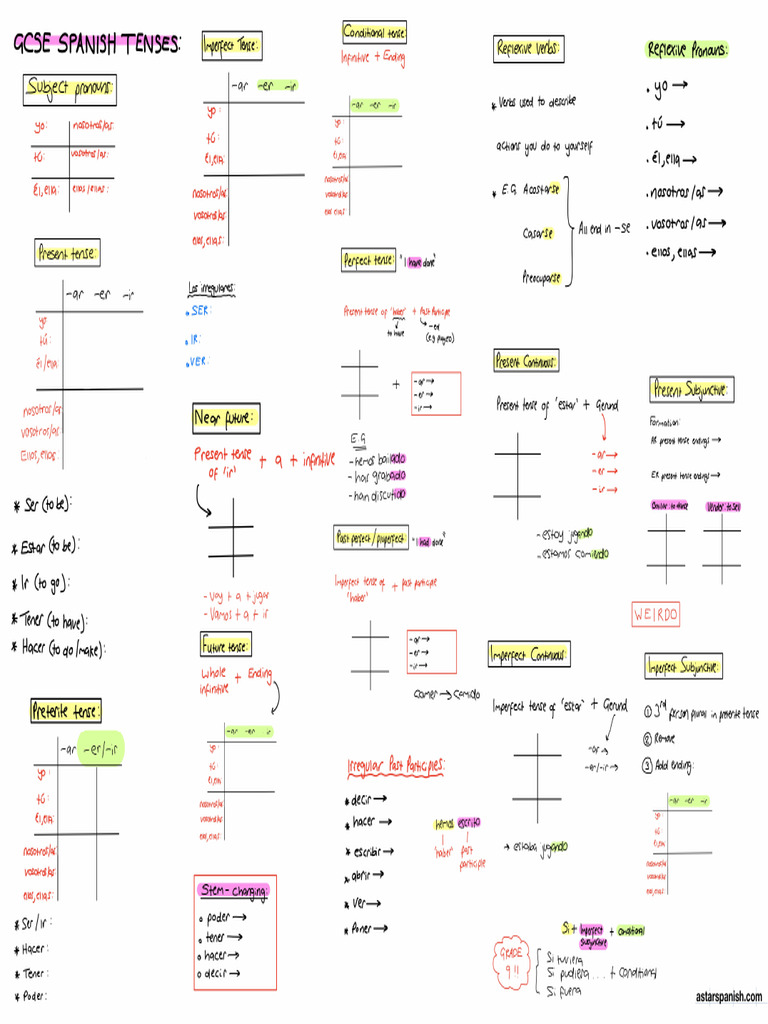 GCSE SPANISH TENSES:
Subject pronouns:
yo:
nosotros/as:
tú:
vosotros/as:
Él, ella:
ellos/ellas:
Present tense:
-ar -er -ir
yo
tú:
él/ella:
nosotros/as:
vosotros/as:
Ellos, ellas:
* Ser (to be):
* Estar (to be):
* Ir (to go):
* Tener (to have):
* Hacer (to do/make):
Preterite tense:
-ar -er/-ir
yo:
tú:
él, ella:
nosotros/as:
vosotros/as:
ellos, ellas:
* Ser/ir:
* Hacer:
* Tener:
* Poder:
Imperfect Tense:
-ar -er -ir
yo:
tú:
él, ella:
nosotros/as
vosotros/as:
ellos, ellas:
Los irregulares:
• SER:
• IR:
• VER:
Near future:
Present tense of 'ir' + a + infinitive
- Voy + a + jugar
- Vamos + a + ir
Future tense:
Whole infinitive + Ending
-ar -er ir
yo:
tú:
él, ella:
nosotros/as:
vosotros/as:
ellos, ellas:
Stem-changing:
poder →
tener →
hacer →
decir →
Conditional tense:
Infinitive + Ending
-ar -er -ir
yo:
tú:
él, ella:
nosotros/as:
vosotros/as:
ellos, ellas:
Perfect tense: "I have done"
Present tense of 'haber' + Past Participle
to have
-ed
(e.g played)
+
-ar →
-er →
-ir →
E.G
- hemos bailado
- has grabado
- han discutido
Past perfect/pluperfect: "I had done"
Imperfect tense of 'haber' + past participle
-ar →
-er →
-ir →
comer → comido
Irregular Past Participles:
* decir →
* hacer →
* escribir →
* abrir →
* ver →
* Poner →
hemos escrito
'haber' past participle
Reflexive verbs:
* Verbs used to describe
actions you do to yourself
* E.G Acostarse
Casarse
Preocuparse
All end in -se
Present Continuous:
Present tense of 'estar' + Gerund
-ar →
-er →
-ir →
- estoy jugando
- estamos comiendo
Imperfect Continuous:
Imperfect tense of 'estar' + Gerund
-ar →
-er/-ir →
→ estaba jugando
Si + imperfect subjunctive + conditional
GRADE 9!!
Si tuviera
Si pudiera ... + conditional
Si fuera
Reflexive Pronouns:
• yo →
• tú →
• él, ella →
• nosotros/as →
• vosotros/as →
• ellos, ellas →
Present Subjunctive:
Formation:
AR present tense endings →
ER present tense endings →
Vender: to sell
WEIRDO
Imperfect Subjunctive:
① 3rd person plural in preterite tense
② Remove
③ Add ending:
-ar -er -ir
yo:
tú:
él, ella:
nosotros/as:
vosotros/as:
ellos, ellas:
astarspanish.com